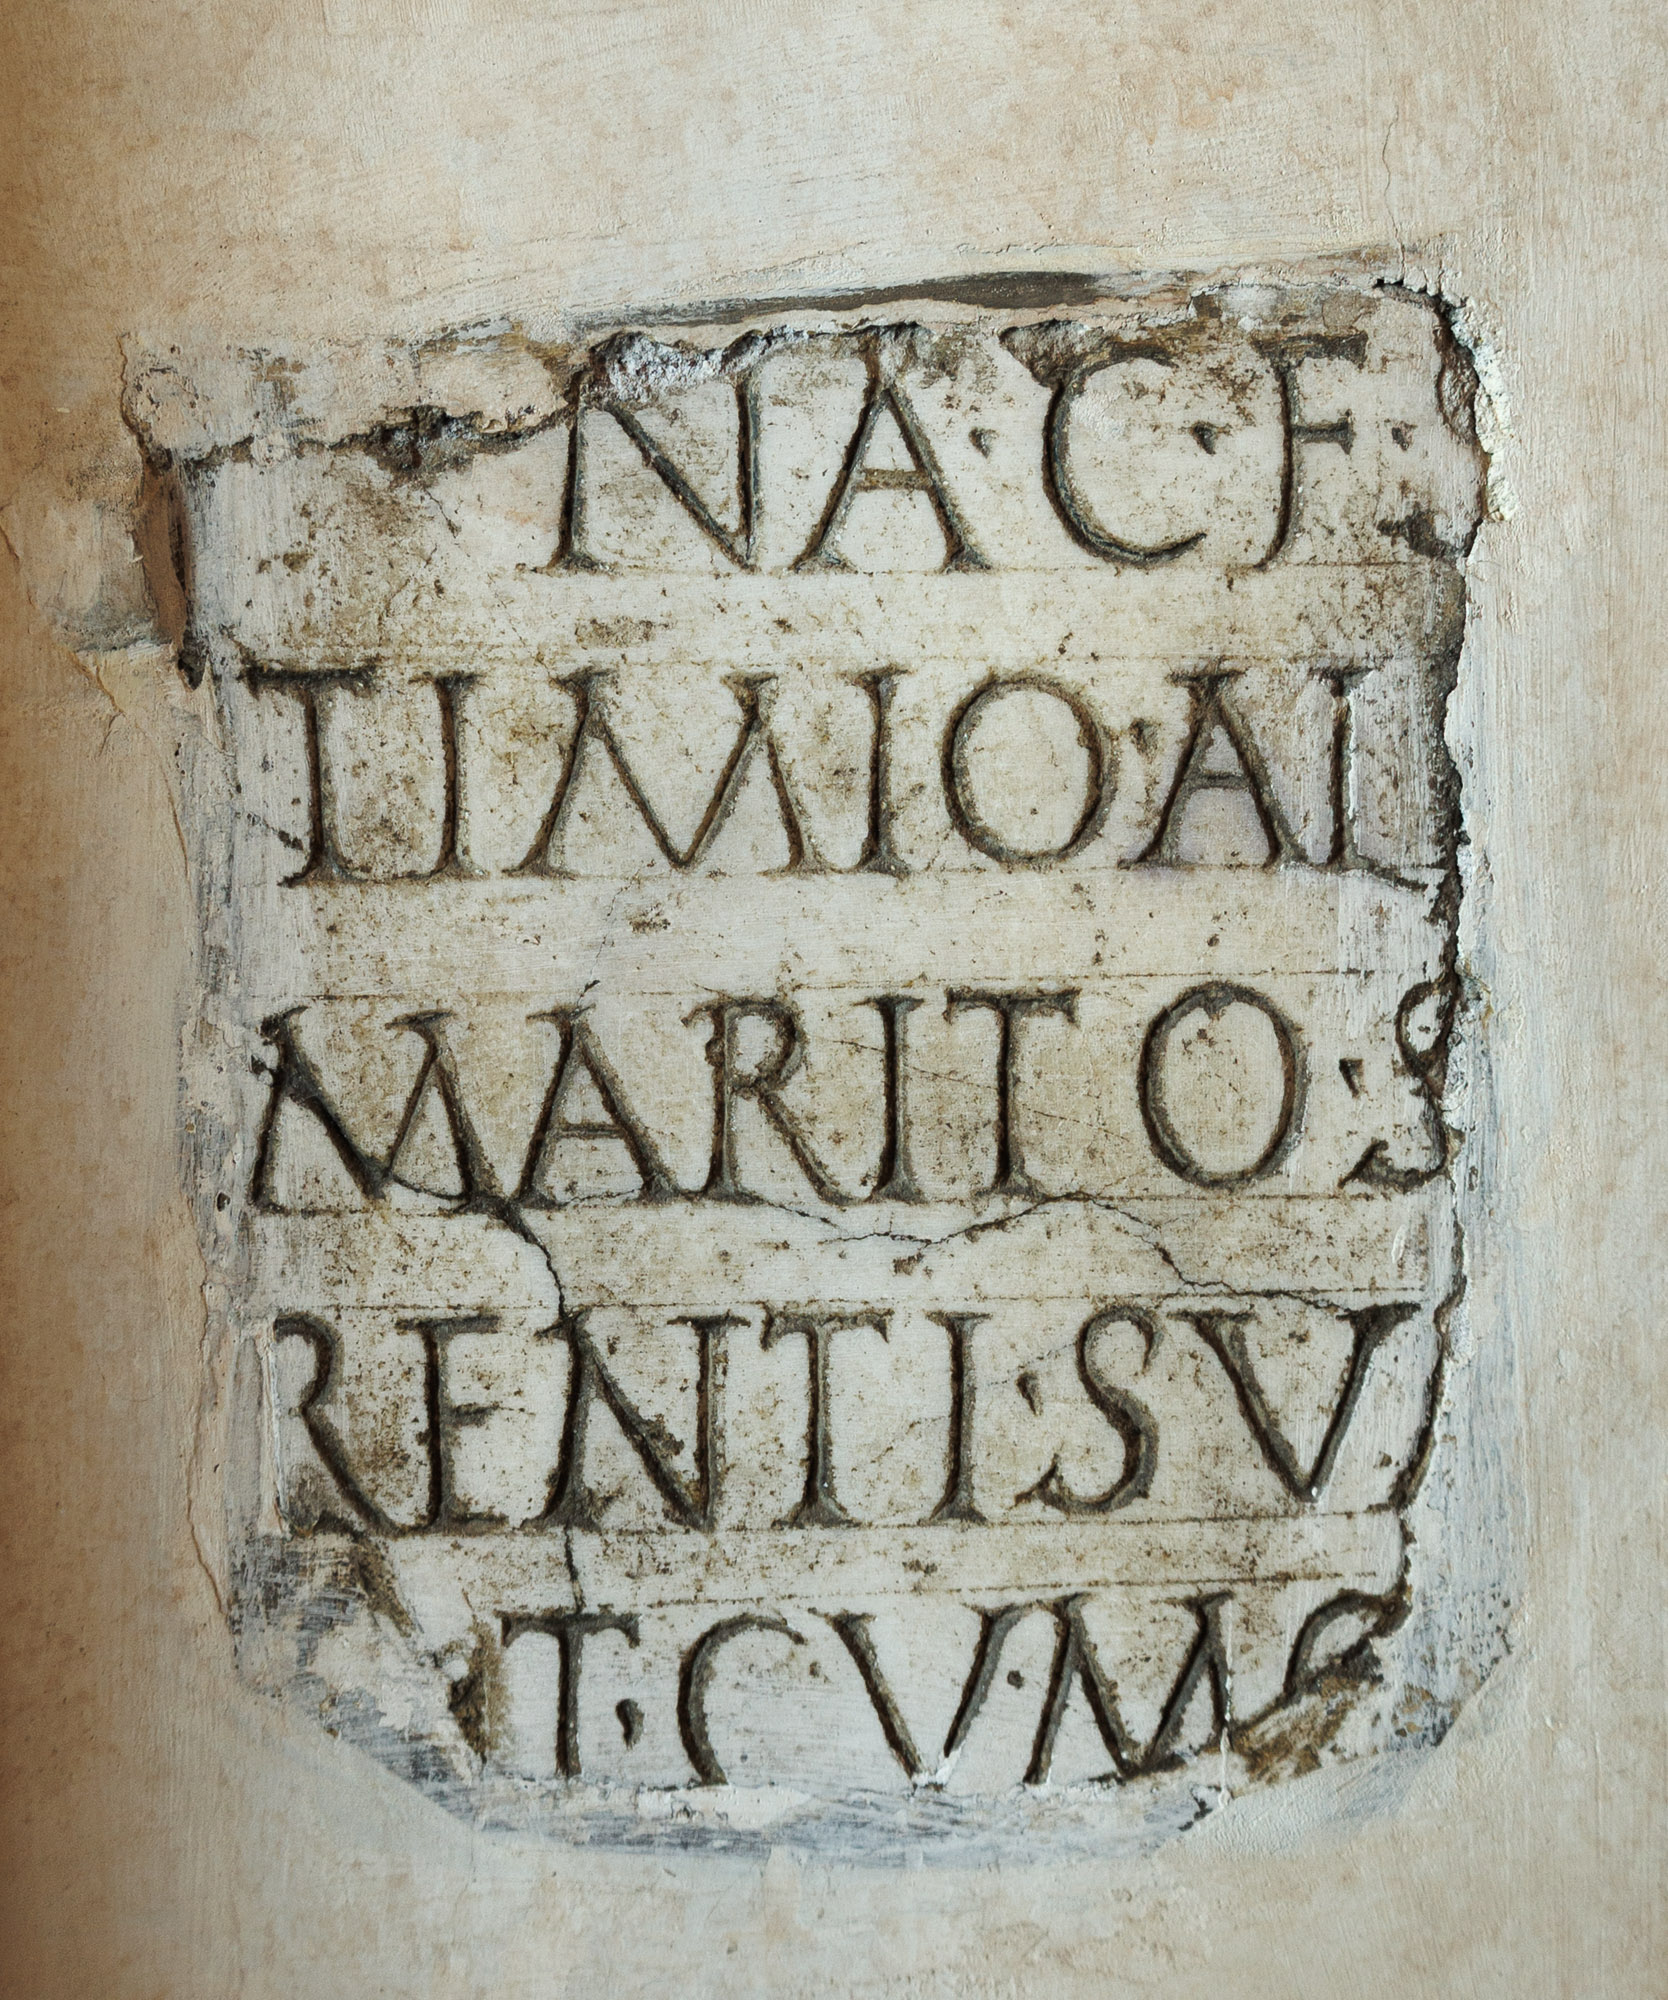 NA·C·F·
TIMIO·AL
MARITO·S
RENTI·SV
T·CVM